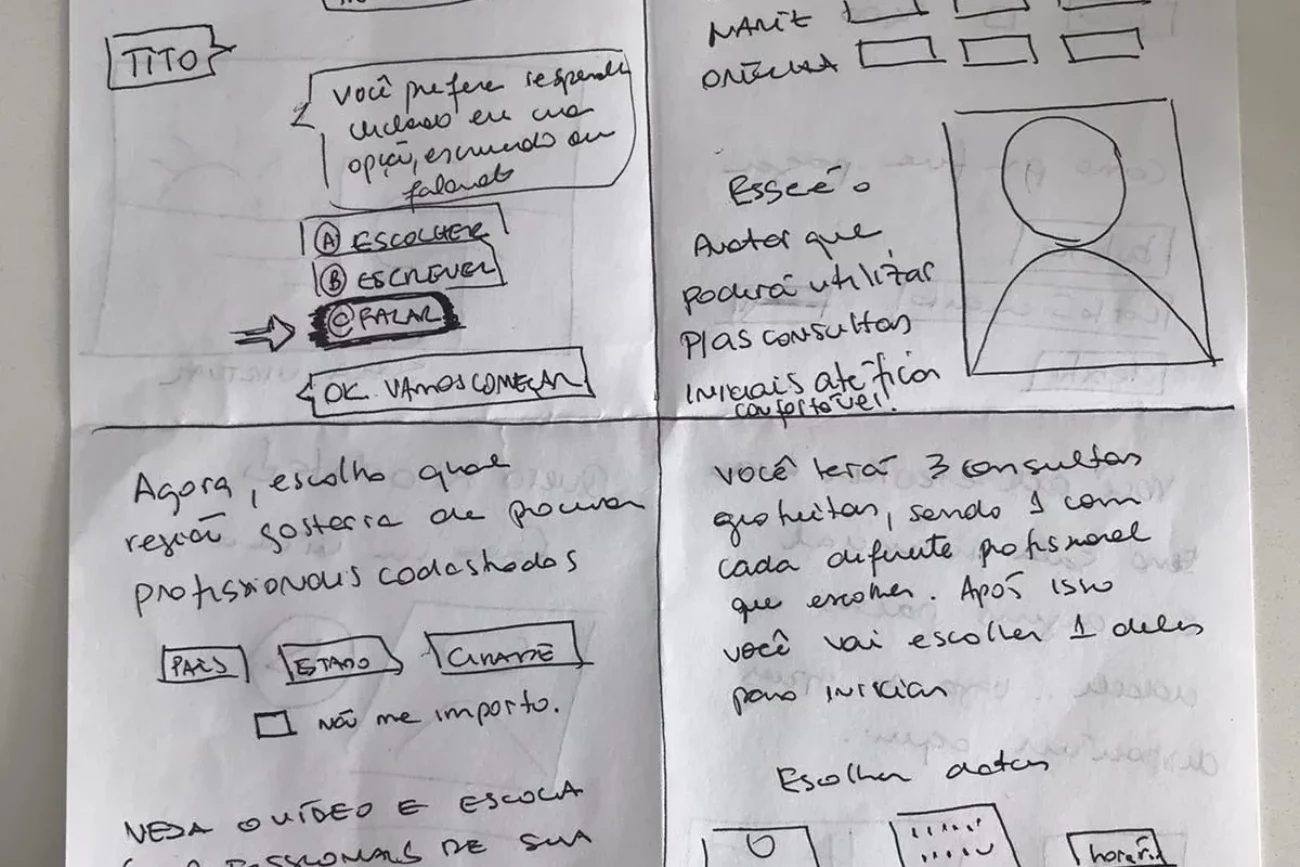 TITO
você prefere responder
clicando em uma
opção, escrevendo ou
falando
Ⓐ ESCOLHER
Ⓑ ESCREVER
Ⓒ FALAR
OK. VAMOS COMEÇAR
NARIZ
ORELHA
Esse é o
Avatar que
poderá utilizar
P/as consultas
iniciais até ficar
confortável!
Agora, escolha qual
região gostaria de procurar
profissionais cadastrados
PAÍS
ESTADO
CIDADE
não me importo.
VEJA O VÍDEO E ESCOLA
PROFISSIONAIS DE SUA
você terá 3 consultas
gratuitas, sendo 1 com
cada diferente profissional
que escolher. Após isso
você vai escolher 1 deles
para iniciar
Escolher datas
horário